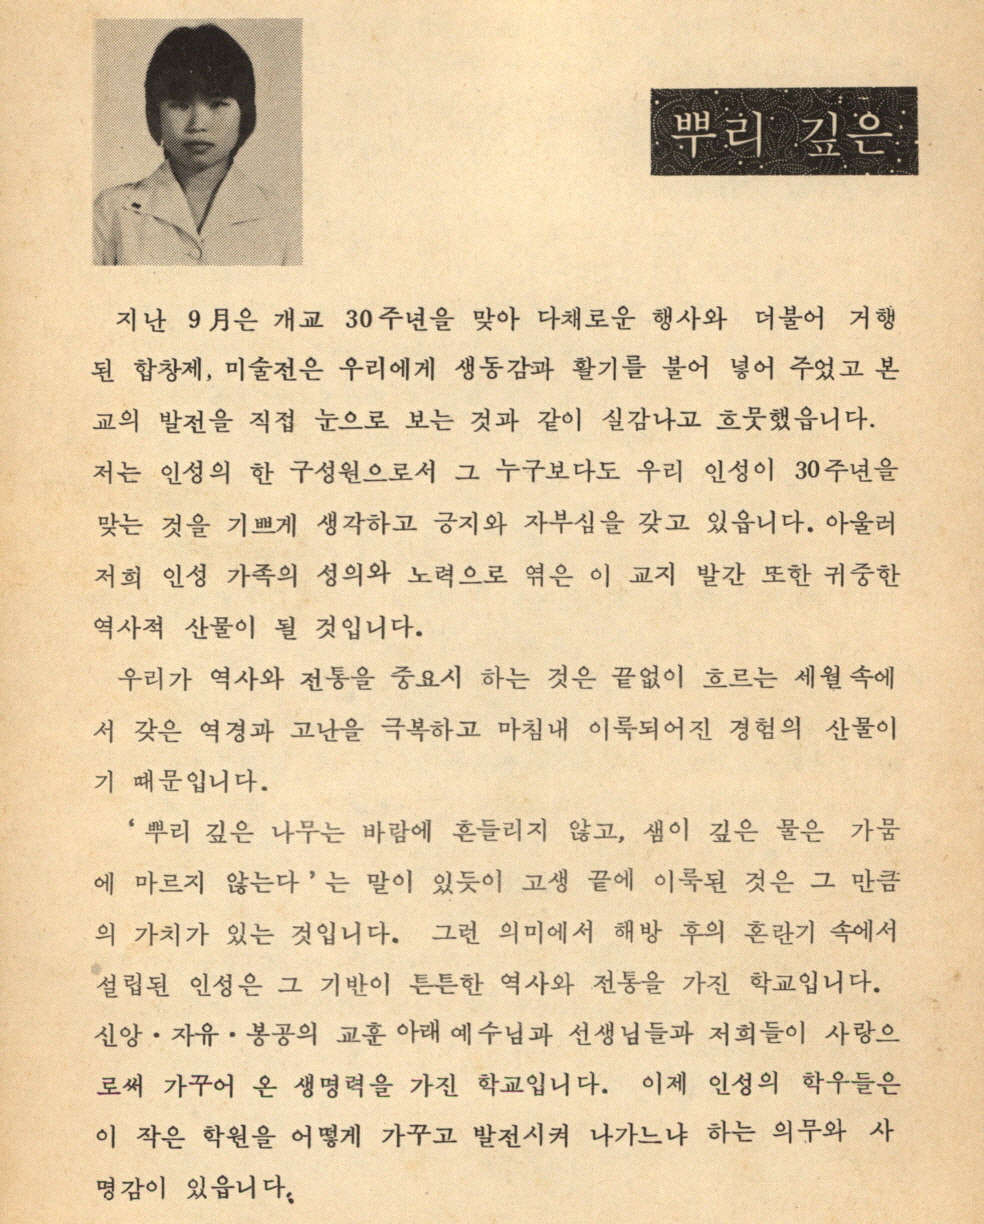 뿌리 깊은
지난 9月은 개교 30주년을 맞아 다채로운 행사와 더불어 거행
된 합창제, 미술전은 우리에게 생동감과 활기를 불어 넣어 주었고 본
교의 발전을 직접 눈으로 보는 것과 같이 실감나고 흐뭇했읍니다.
저는 인성의 한 구성원으로서 그 누구보다도 우리 인성이 30주년을
맞는 것을 기쁘게 생각하고 긍지와 자부심을 갖고 있읍니다. 아울러
저희 인성 가족의 성의와 노력으로 엮은 이 교지 발간 또한 귀중한
역사적 산물이 될 것입니다.
우리가 역사와 전통을 중요시 하는 것은 끝없이 흐르는 세월 속에
서 갖은 역경과 고난을 극복하고 마침내 이룩되어진 경험의 산물이
기 때문입니다.
‘뿌리 깊은 나무는 바람에 흔들리지 않고, 샘이 깊은 물은 가뭄
에 마르지 않는다’는 말이 있듯이 고생 끝에 이룩된 것은 그 만큼
의 가치가 있는 것입니다. 그런 의미에서 해방 후의 혼란기 속에서
설립된 인성은 그 기반이 튼튼한 역사와 전통을 가진 학교입니다.
신앙·자유·봉공의 교훈 아래 예수님과 선생님들과 저희들이 사랑으
로써 가꾸어 온 생명력을 가진 학교입니다. 이제 인성의 학우들은
이 작은 학원을 어떻게 가꾸고 발전시켜 나가느냐 하는 의무와 사
명감이 있읍니다.